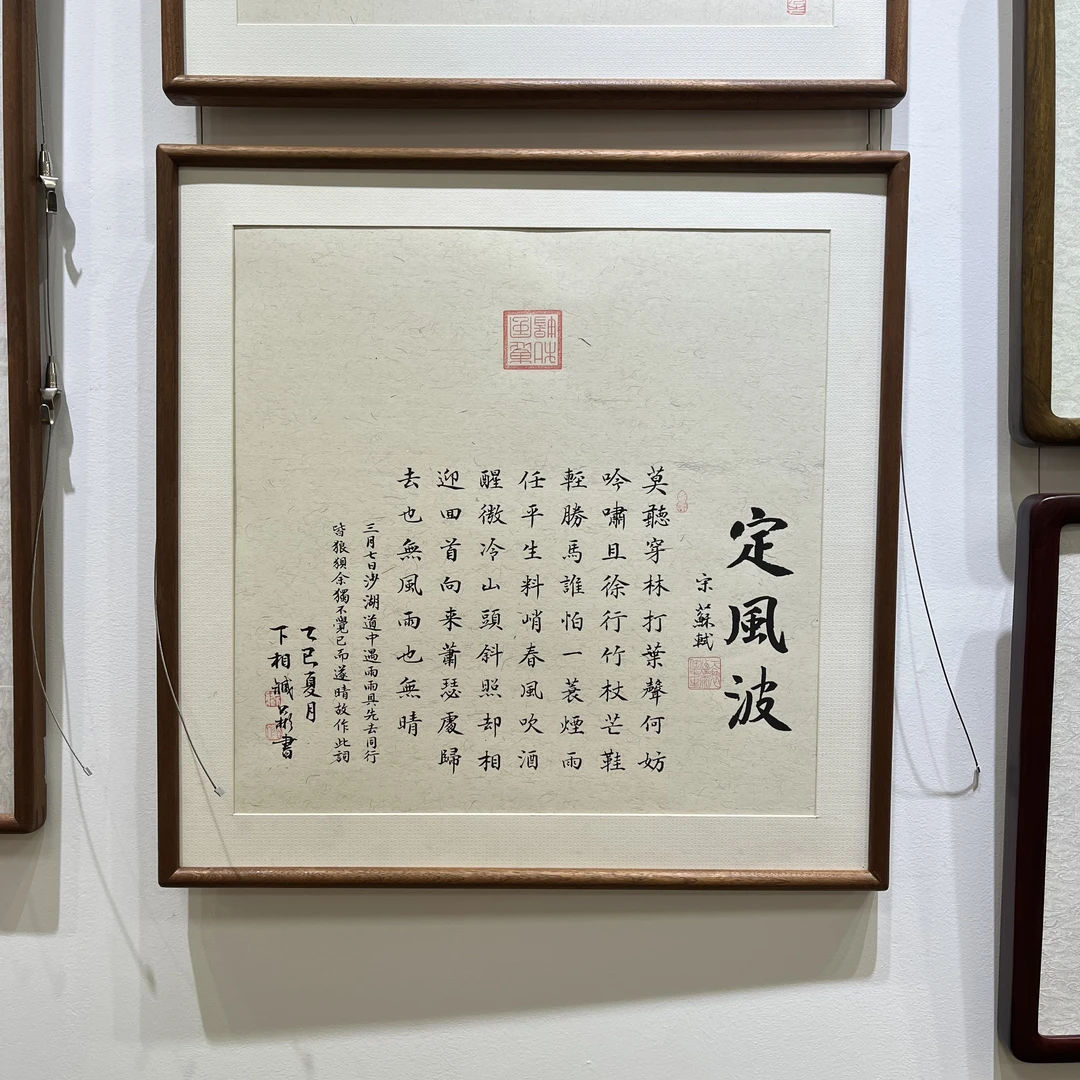 定風波
宋 蘇軾
莫聽穿林打葉聲何妨
吟嘯且徐行竹杖芒鞋
輕勝馬誰怕一蓑煙雨
任平生料峭春風吹酒
醒微冷山頭斜照却相
迎回首向来蕭瑟處歸
去也無風雨也無晴
三月七日沙湖道中遇雨雨具先去同行
皆狼狽余獨不覺已而遂晴故作此詞
乙巳夏月
下相臧彬書